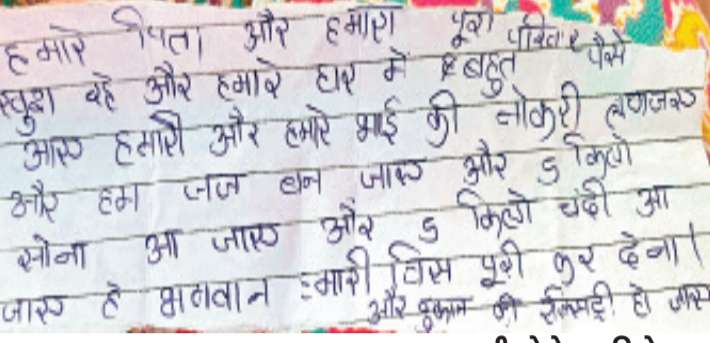 हमारे पिता और हमारा पूरा परिवार
खुश रहे और हमारे घर में बहुत पैसे
आए हमारी और हमारे भाई की नोकरी लगजाए
और हम जज बन जाए और 5 किलो
सोना आ जाए और 5 किलो चंदी आ
जाए हे भगवान हमारी विस पूरी कर देना।
और दुकान की रजिस्ट्री हो जाए